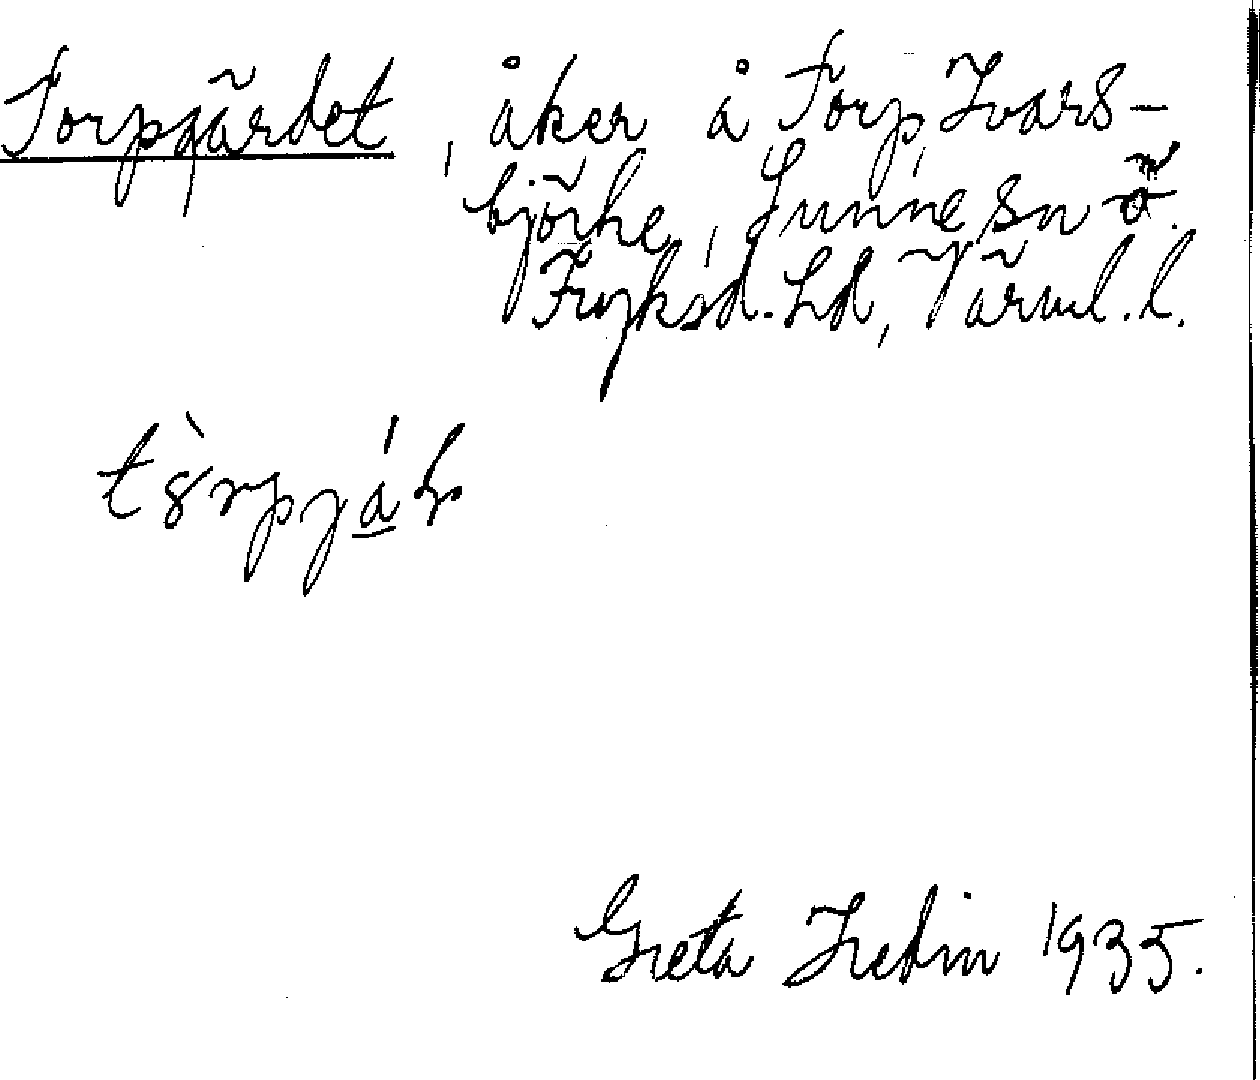 Torpgärdet, åker å Torp, Ivars-
björke, Sunne sn
Fryksd. hd, Värml. l.
Greta Hedin 1935.